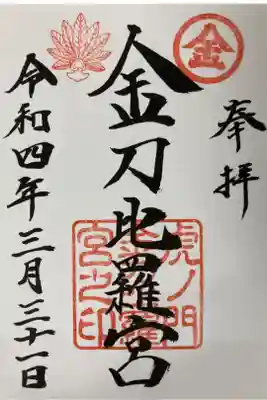 奉拝
金
金刀比羅宮
虎ノ門
金刀比羅
宮之印
令和四年三月三十一日